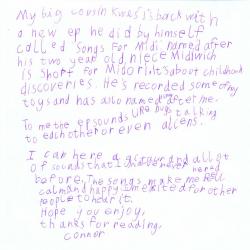 My big cousin Kwes is back with
a new ep he did by himself
called Songs for Midi, named after
his two year old niece Midwich
is short for Midori. it's about childhood
discoveries. He's recorded some of my
toys and has also named after me.
To me the ep sounds like bugs talking
to each other or even aliens.
I can here a and allot
of sounds that I never herd
before. The songs make me feel
calm and happy. Im exited for other
people to hear it.
Hope you enjoy,
thanks for reading,
connor